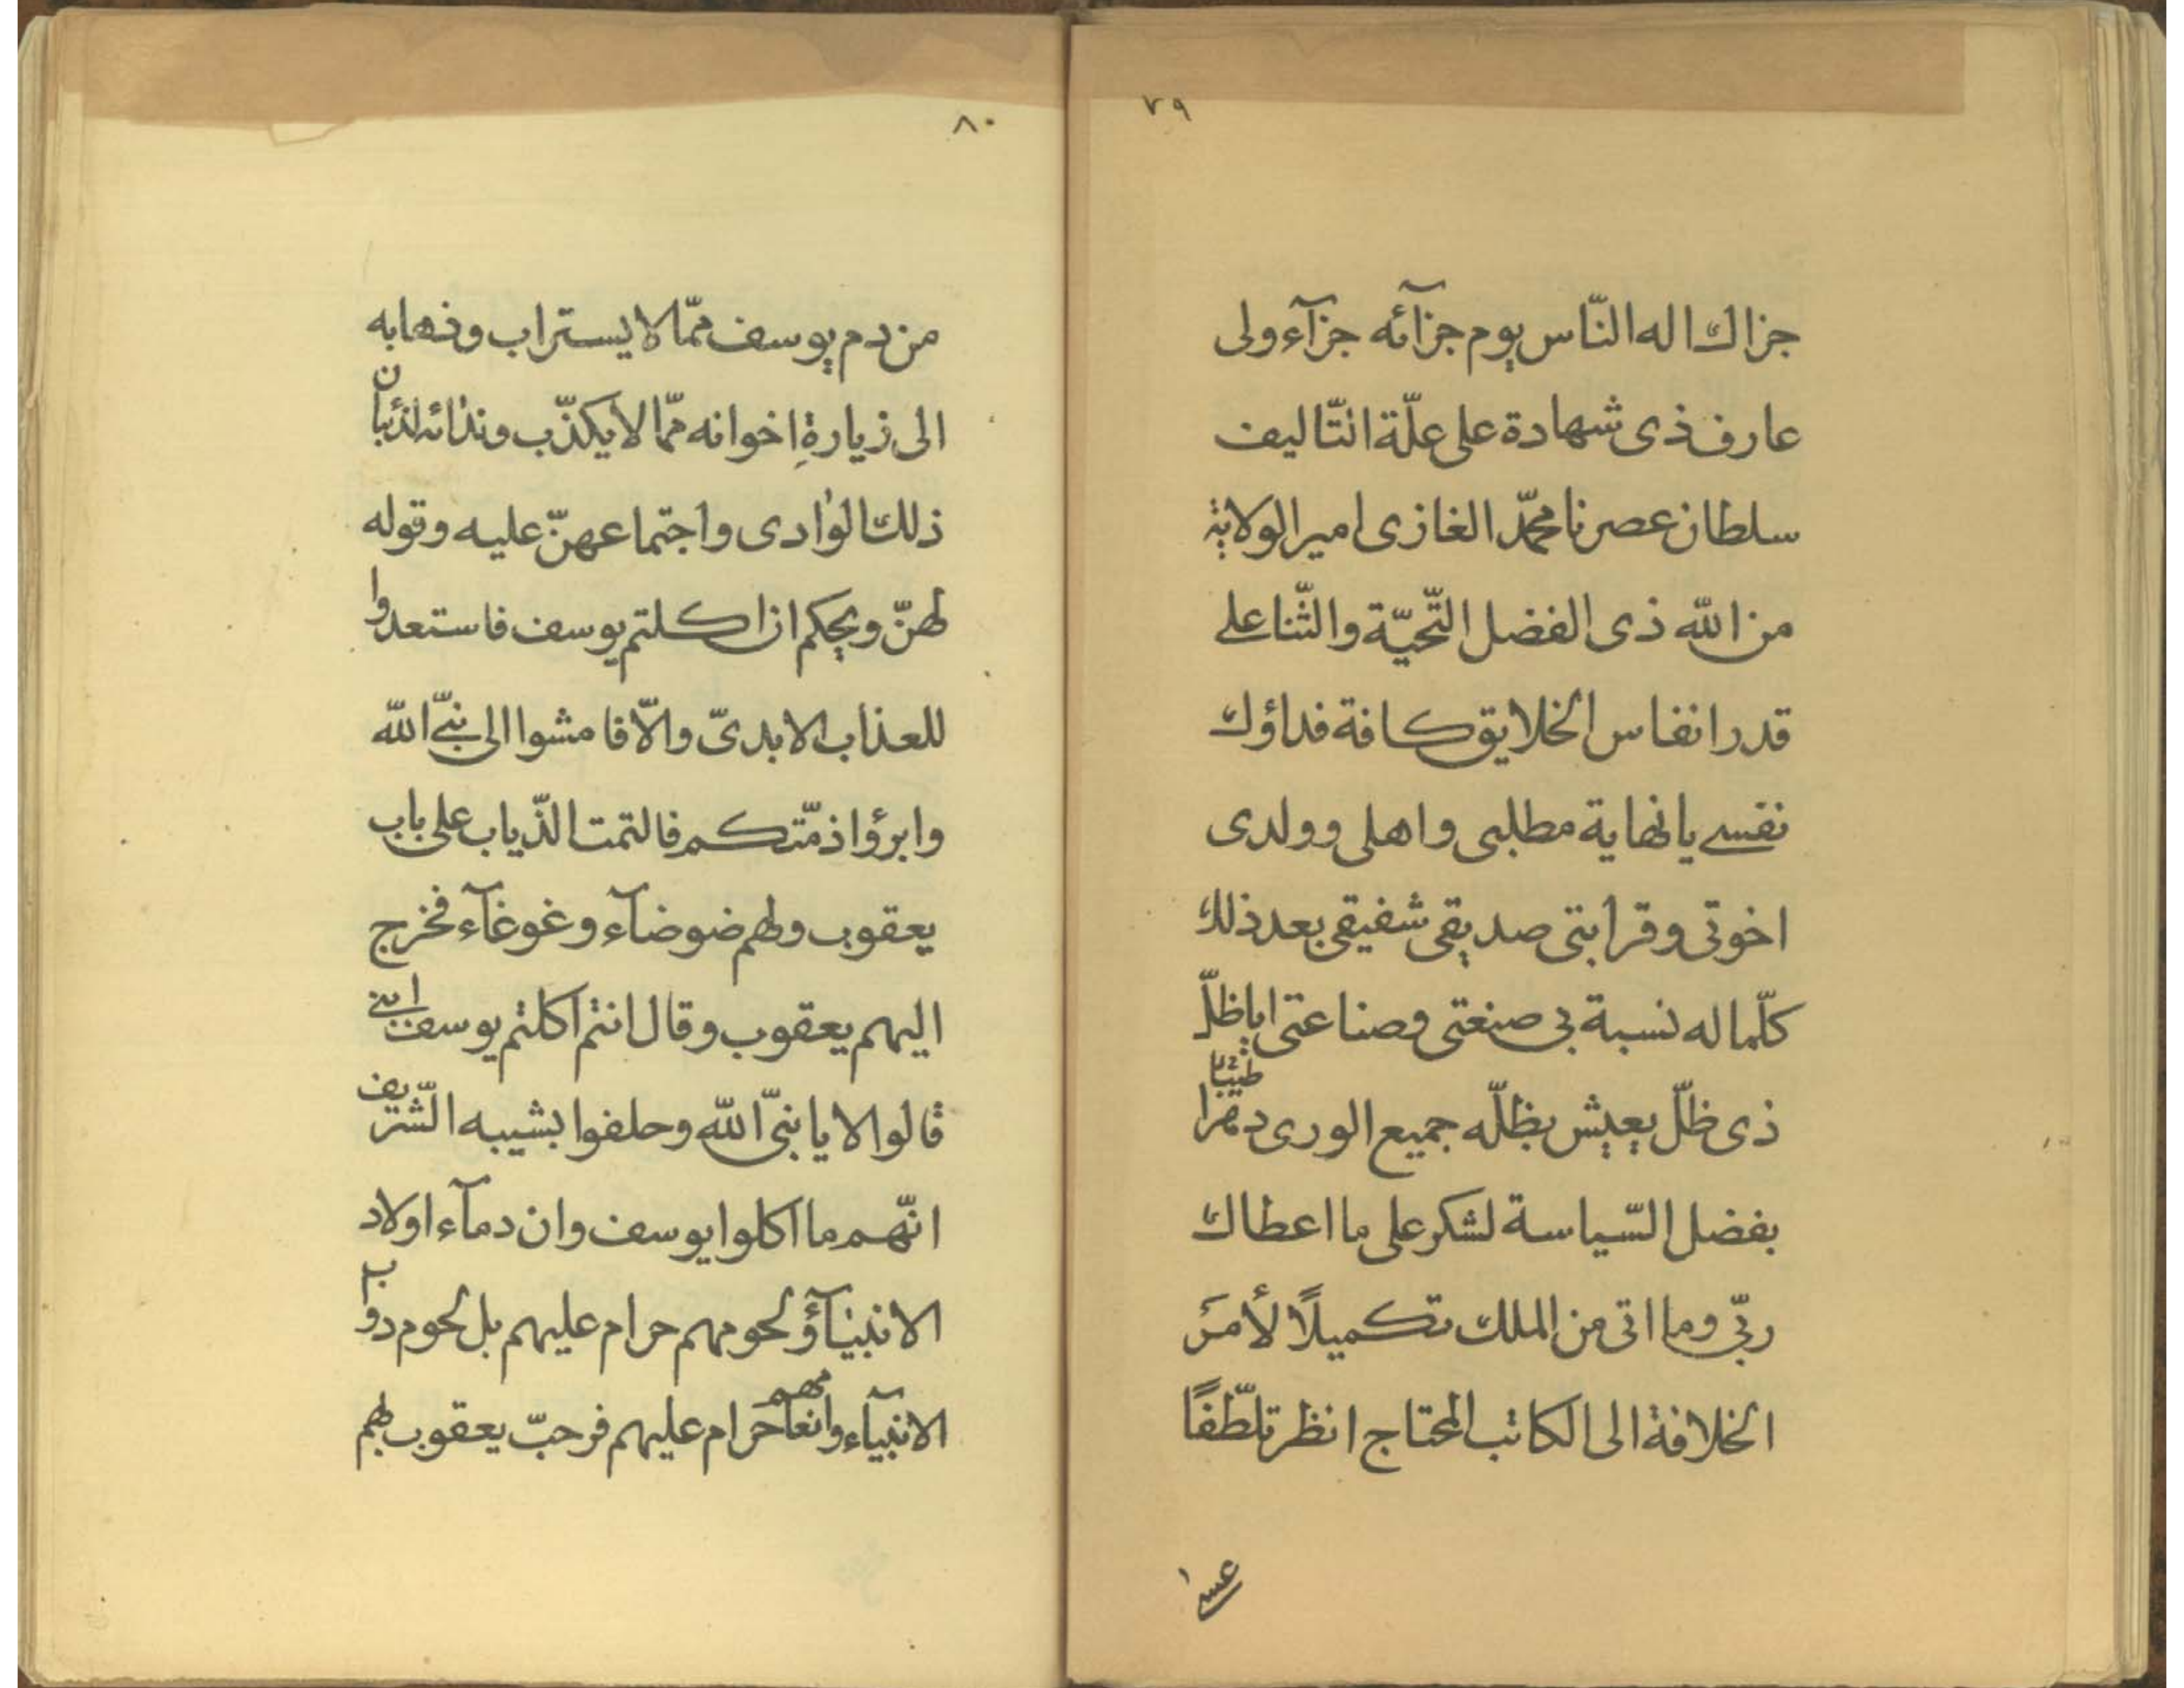 ٧٩
جزاك اله النّاس يوم جزآئه جزآء ولى
عارف ذى شهادة على علّة التّاليف
سلطان عصرنا محمّد الغازى امير الولاية
من الله ذى الفضل التّحيّة والثّنا على
قدر انفاس الخلايق كافة فداؤك
نفسى يا نهاية مطلبى واهلى وولدى
اخوتى وقرابتى صديقى شفيقى بعد ذلك
كلّما له نسبة بى صنعتى وصناعتى اياظلّ
ذى ظلّ يعيش بظلّه جميع الورى دهرا طيّبا
بفضل السّياسة لشكر على ما اعطاك
ربّى وما اتى من الملك تكميلًا لأمر
الخلافة الى الكاتب المحتاج انظر تلطّفًا
عسى
٨٠
من دم يوسف ممّا لا يستراب وذهابه
الى زيارةِ اخوانه ممّا لا يكذّب وندائه لذئبان
ذلك الوادى واجتماعهنّ عليه وقوله
لهنّ ويحكم ان اكلتم يوسف فاستعدوا
للعذاب الابدىّ والّا فامشوا الى نبىّ الله
وابرؤا ذمّتكم فالتمت الذّياب على باب
يعقوب ولهم ضوضآء وغوغآء فخرج
اليهم يعقوب وقال انتم اكلتم يوسف ابنى
قالوا لا يا نبىّ الله وحلفوا بشيبه الشّريف
انّهم ما اكلوا يوسف وان دمآء اولاد
الانبيآؤ لحومهم حرام عليهم بل لحوم دواب
الانبيآء وانعامهم حرام عليهم فرحبّ يعقوب بهم